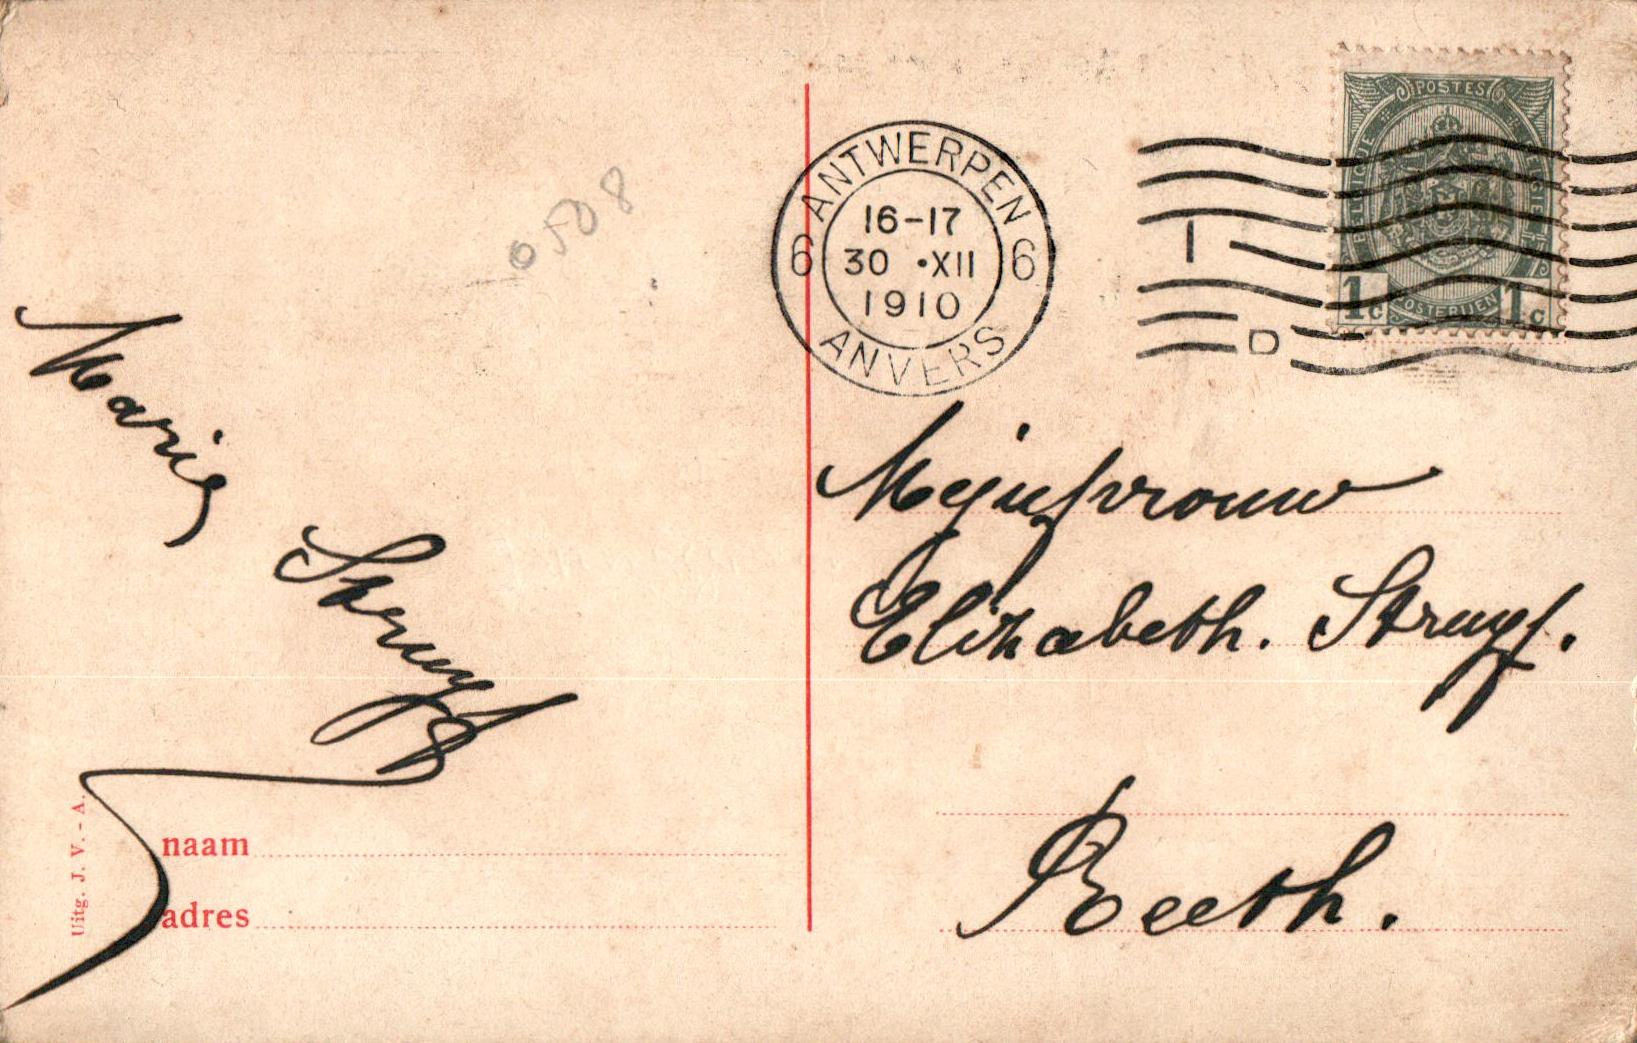 0508
Marie
Struyf
Uitg. J. V. - A.
naam
adres
ANTWERPEN
6 6
16-17
30 •XII
1910
ANVERS
I
D
POSTES
BELGIQUE
BELGIË
1c POSTERIJEN 1c
Mejufvrouw
Elizabeth. Struyf.
Reeth.